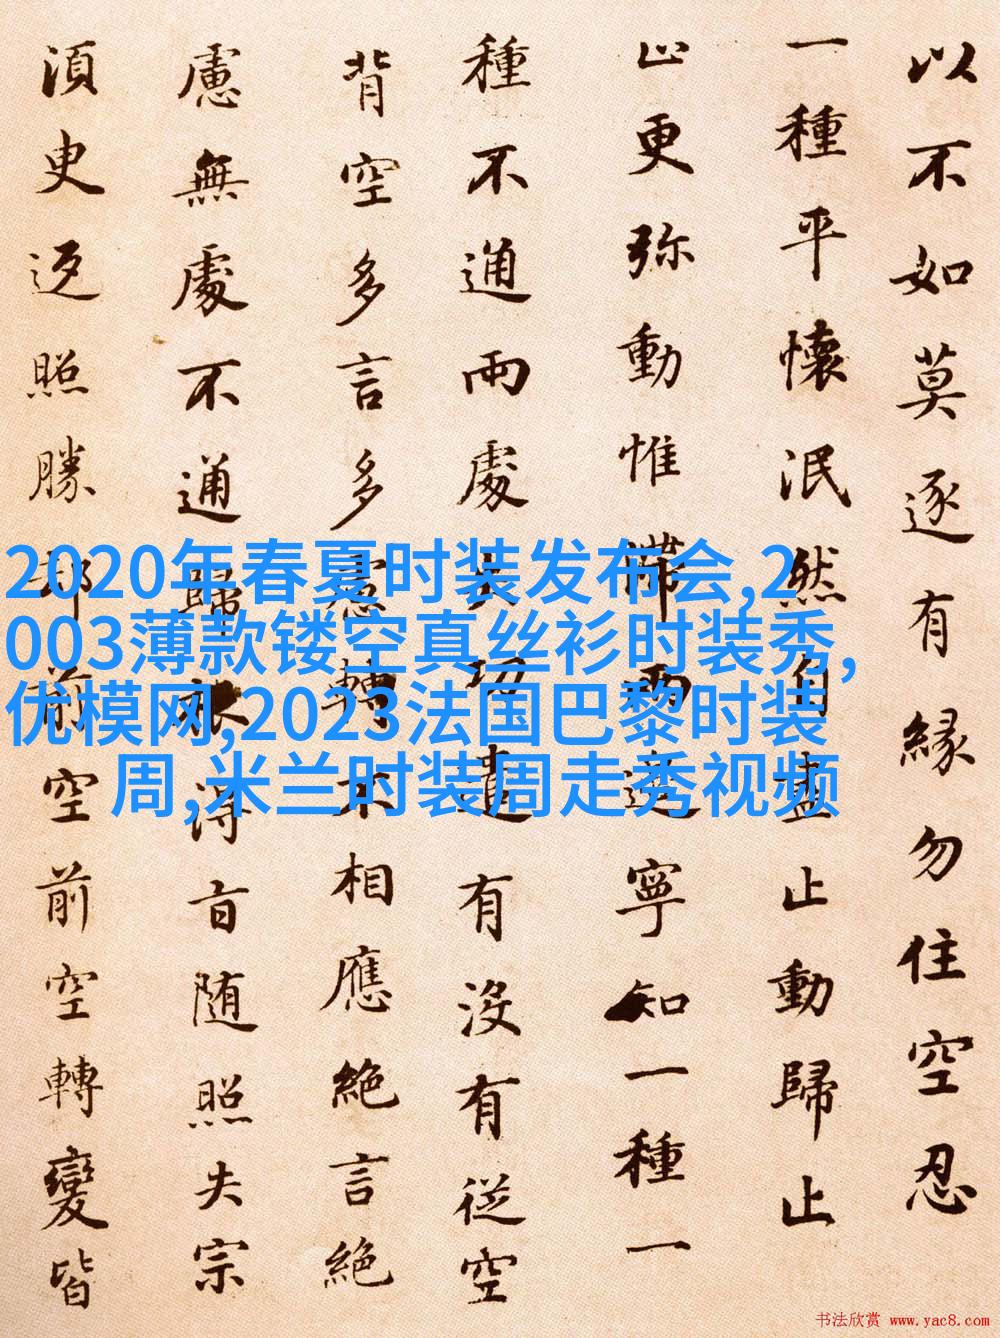 以不如莫逐有緣勿住空忍
一種平懷泯然自盡止動歸止
止更弥動惟滯兩邊寧知一種一
種不通兩處失功遣有没有從空
背空多言多慮轉不相應絕言絕
慮無處不通歸根得旨随照失宗
須臾返照勝却前空前空轉變皆
2020年春夏时装发布会,2
003薄款镂空真丝衫时装秀,
优模网,2023法国巴黎时装
周,米兰时装周走秀视频
书法欣赏 www.yac8.com